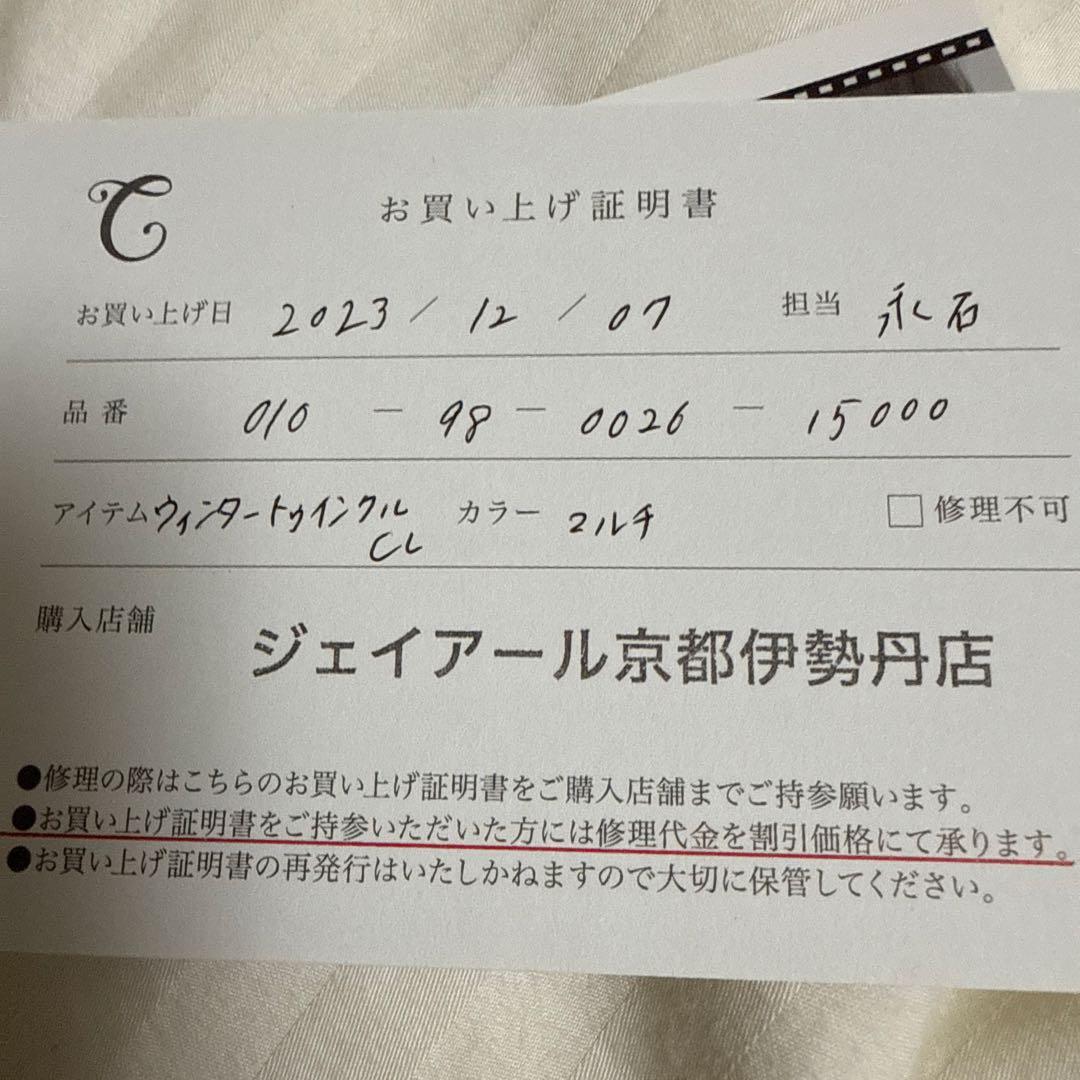 お買い上げ証明書
お買い上げ日 2023 / 12 / 07 担当 永石
品番 010 - 98 - 0026 - 15000
アイテム ウィンタートゥインクル カラー マルチ □修理不可
CL
購入店舗 ジェイアール京都伊勢丹店
●修理の際はこちらのお買い上げ証明書をご購入店舗までご持参願います。
●お買い上げ証明書をご持参いただいた方には修理代金を割引価格にて承ります。
●お買い上げ証明書の再発行はいたしかねますので大切に保管してください。